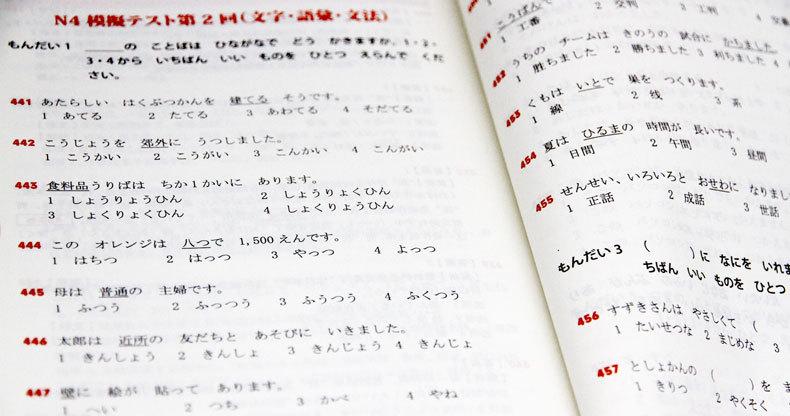 N4 模擬テスト第2回(文字・語彙・文法)
もんだい1 ＿＿＿の ことばは ひらがなで どう かきますか。1・2・
3・4から いちばん いい ものを ひとつ えらんで くだ
さい。
441 あたらしい はくぶつかんを 建てる そうです。
1 あてる 2 たてる 3 あわてる 4 そだてる
442 こうじょうを 郊外に うつしました。
1 こうかい 2 こうがい 3 こんかい 4 こんがい
443 食料品うりばは ちか1かいに あります。
1 しょうりょうひん 2 しょうりょくひん
3 しょくりょくひん 4 しょくりょうひん
444 この オレンジは 八つで 1,500えんです。
1 はちつ 2 はっつ 3 やっつ 4 よっつ
445 母は 普通の 主婦です。
1 ふつう 2 ふっつう 3 ふうつう 4 ふくつう
446 太郎は 近所の 友だちと あそびに いきました。
1 きんしょう 2 きんしょ 3 きんじょう 4 きんじょ
447 壁に 絵が 貼って あります。
1 へい 2 つち 3 かべ 4 やね
451 こうばんで
1 工番 2 交判 3 工判 4 交番
452 うちの チームは きのうの 試合に かちました
1 胜ちました 2 勝ちました 3 利ちました 4
453 くもは いとで 巣を つくります。
1 線 2 线 3 系
454 夏は ひるまの 時間が 長いです。
1 日間 2 午間 3 昼間
455 せんせい、いろいろと おせわに なりまし
1 正話 2 成話 3 世話
もんだい3 ( )に なにを いれま
ちばん いい ものを ひとつ
456 すずきさんは やさしくて (
1 たいせつな 2 まじめな 3
457 としょかんの ( )を ま
1 きりつ 2 やくそく